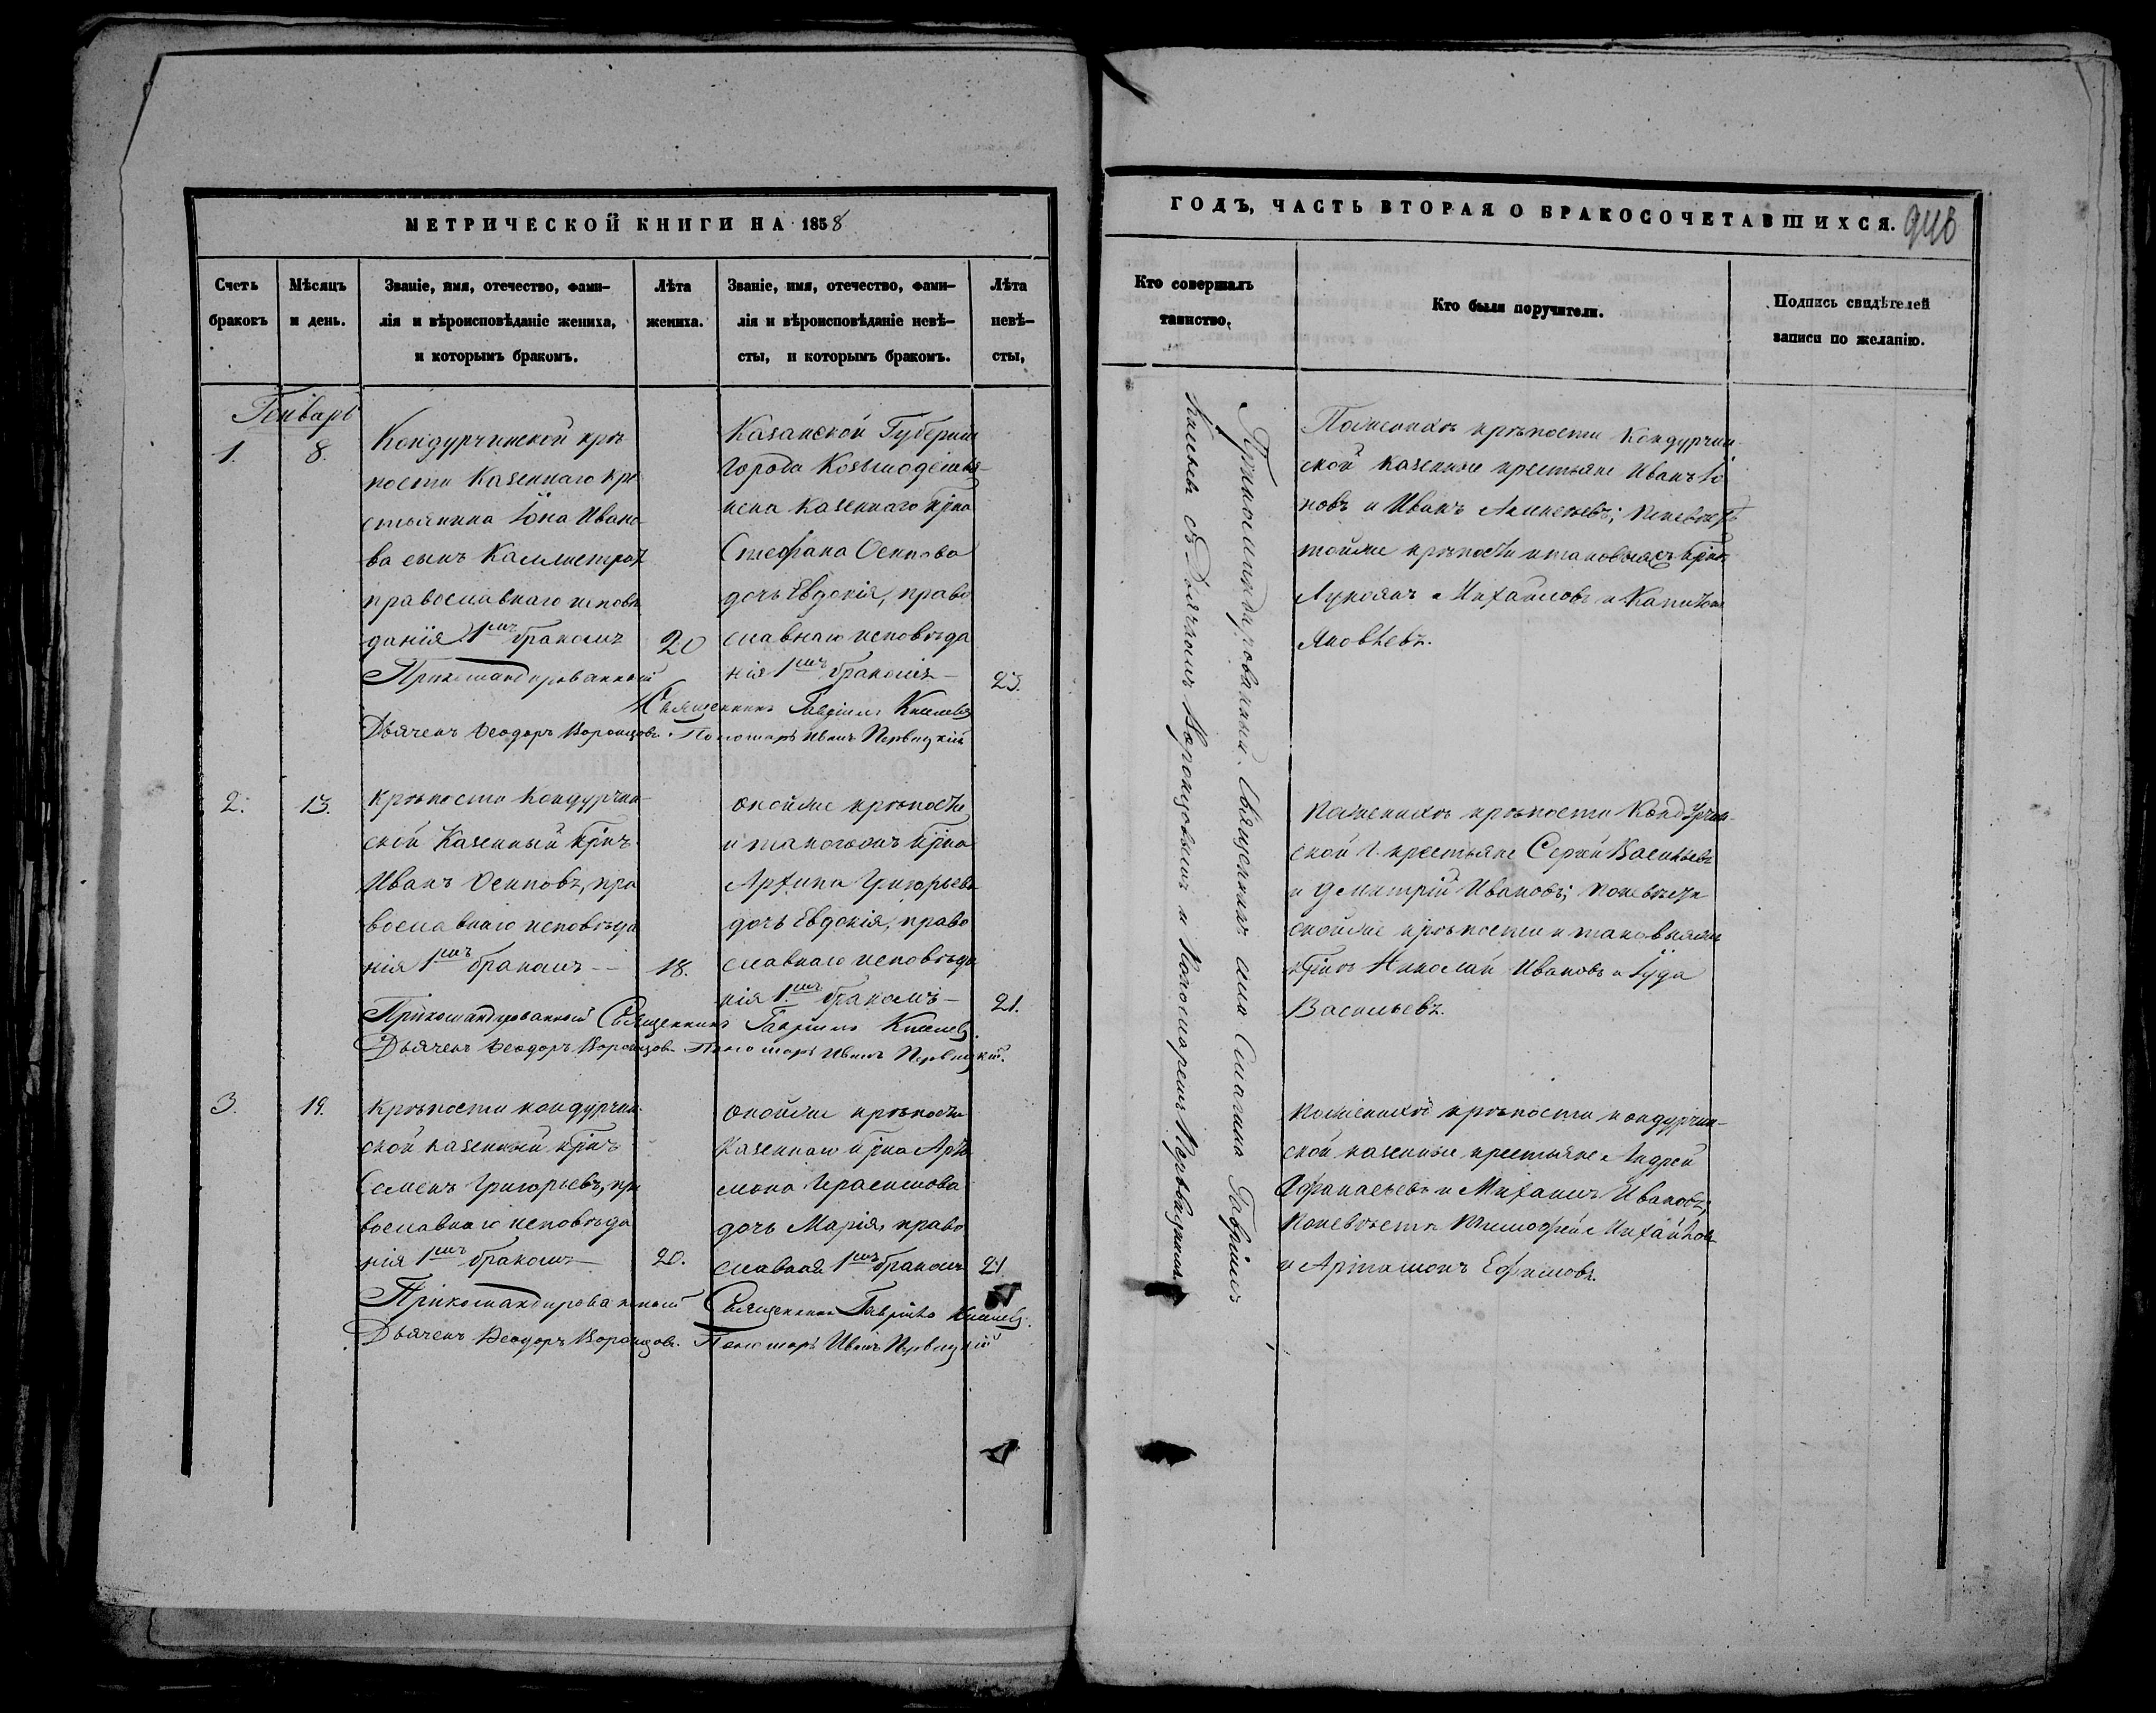 МЕТРИЧЕСКОЙ КНИГИ НА 1858
Счетъ
браковъ
Мѣсяцъ
и день.
Званіе, имя, отечество, фами-
лія и вѣроисповѣданіе жениха,
и которымъ бракомъ.
Лѣта
жениха.
Званіе, имя, отечество, фами-
лія и вѣроисповѣданіе невѣ-
сты, и которымъ бракомъ.
Лѣта
невѣ-
сты,
Генварь
1.
8.
Кондурчинской крѣ
пости Казеннаго кре
стьянина Іона Ивано
ва сынъ Каллистратъ
православнаго исповѣ
данія 1мъ бракомъ
20
Казанской Губерніи
города Козмодемья-
нска казеннаго крна
Стефана Осипова
дочь Евдокія, право
славнаго исповѣда
нія 1мъ бракомъ
23.
Прикомандированной
Священникъ Гавріилъ
Дьячекъ Ѳеодоръ Воронцовъ. Пономарь Иванъ
2.
13.
Крѣпости Кондурчин-
ской Казенный крнъ
Иванъ Осиповъ, пра
вославнаго исповѣда
нія 1мъ бракомъ
18.
оной же крѣпости
и таковагожъ крна
Архипа Григорьева
дочь Евдокія, право
славнаго исповѣда
нія 1мъ бракомъ
21.
Прикомандированной Священникъ Гавріилъ
Дьячекъ Ѳеодоръ Воронцовъ Пономарь Иванъ
3.
19.
Крѣпости кондурчин-
ской казенный крнъ
Семенъ Григорьевъ, пра
вославнаго исповѣда
нія 1мъ бракомъ
20.
оной же крѣпости
Казеннаго крна Арта
мона Герасимова
дочь Марія, право
славная 1мъ бракомъ
21
Прикомандированной Священникъ Гавріилъ
Дьячекъ Ѳеодоръ Воронцовъ. Пономарь Иванъ
ГОДЪ, ЧАСТЬ ВТОРАЯ О БРАКОСОЧЕТАВШИХСЯ.
Кто совершалъ
таинство.
Кто были поручители.
Подпись свидѣтелей
записи по желанію.
Прикомандированный Священникъ села Гавріилъ
съ Дьячкомъ Воронцовымъ и Пономаремъ
По женихѣ крѣпости Кондурчин-
ской казенные крестьяне Иванъ
и Иванъ Алексѣевъ; по невѣстѣ
той же крѣпости и таковыежъ крне
Лукоянъ Михайловъ и Капитонъ
Яковлевъ.
По женихѣ крѣпости Кондурчин-
ской г. крестьяне Сергѣй Васильевъ
и Дмитрій Ивановъ; по невѣстѣ
оной же крѣпости и таковыежъ
крне Николай Ивановъ и Іуда
Васильевъ.
По женихѣ крѣпости кондурчин-
ской казенные крестьяне Андрей
Афанасьевъ и Михаилъ Ивановъ,
По невѣстѣ Тимофей Михайловъ
и Артамонъ Ефимовъ.